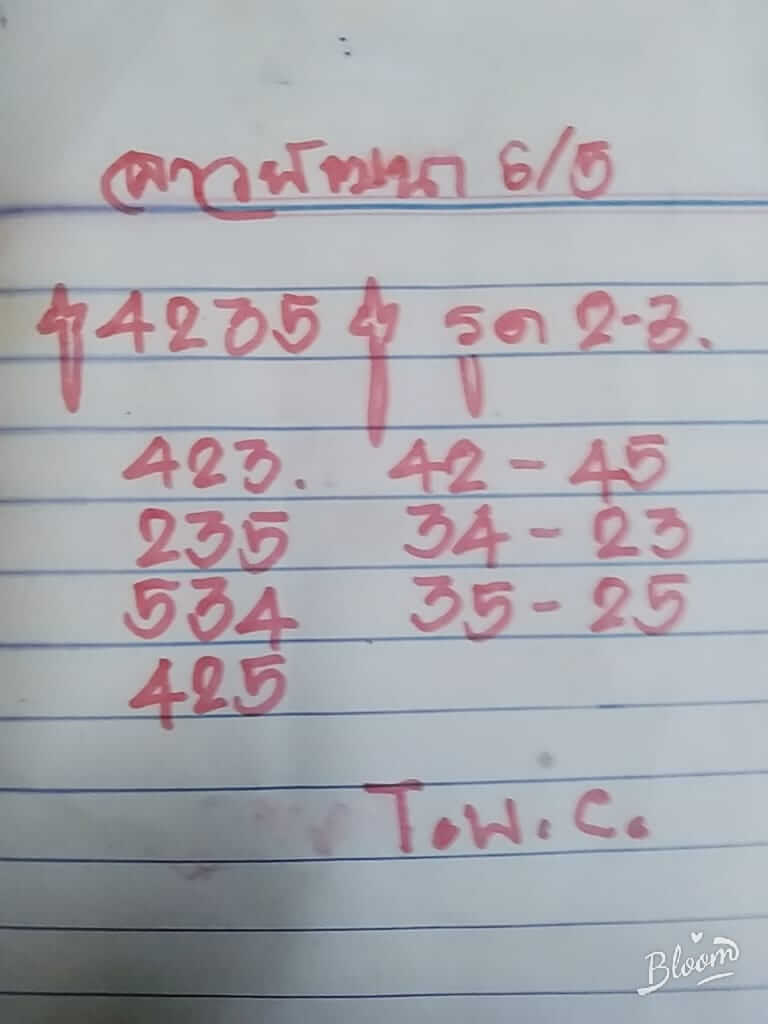 ลาวพัฒนา 6/5
4235 รูด 2-3.
423. 42 - 45
235 34 - 23
534 35 - 25
425
T.W.C.
Bloom